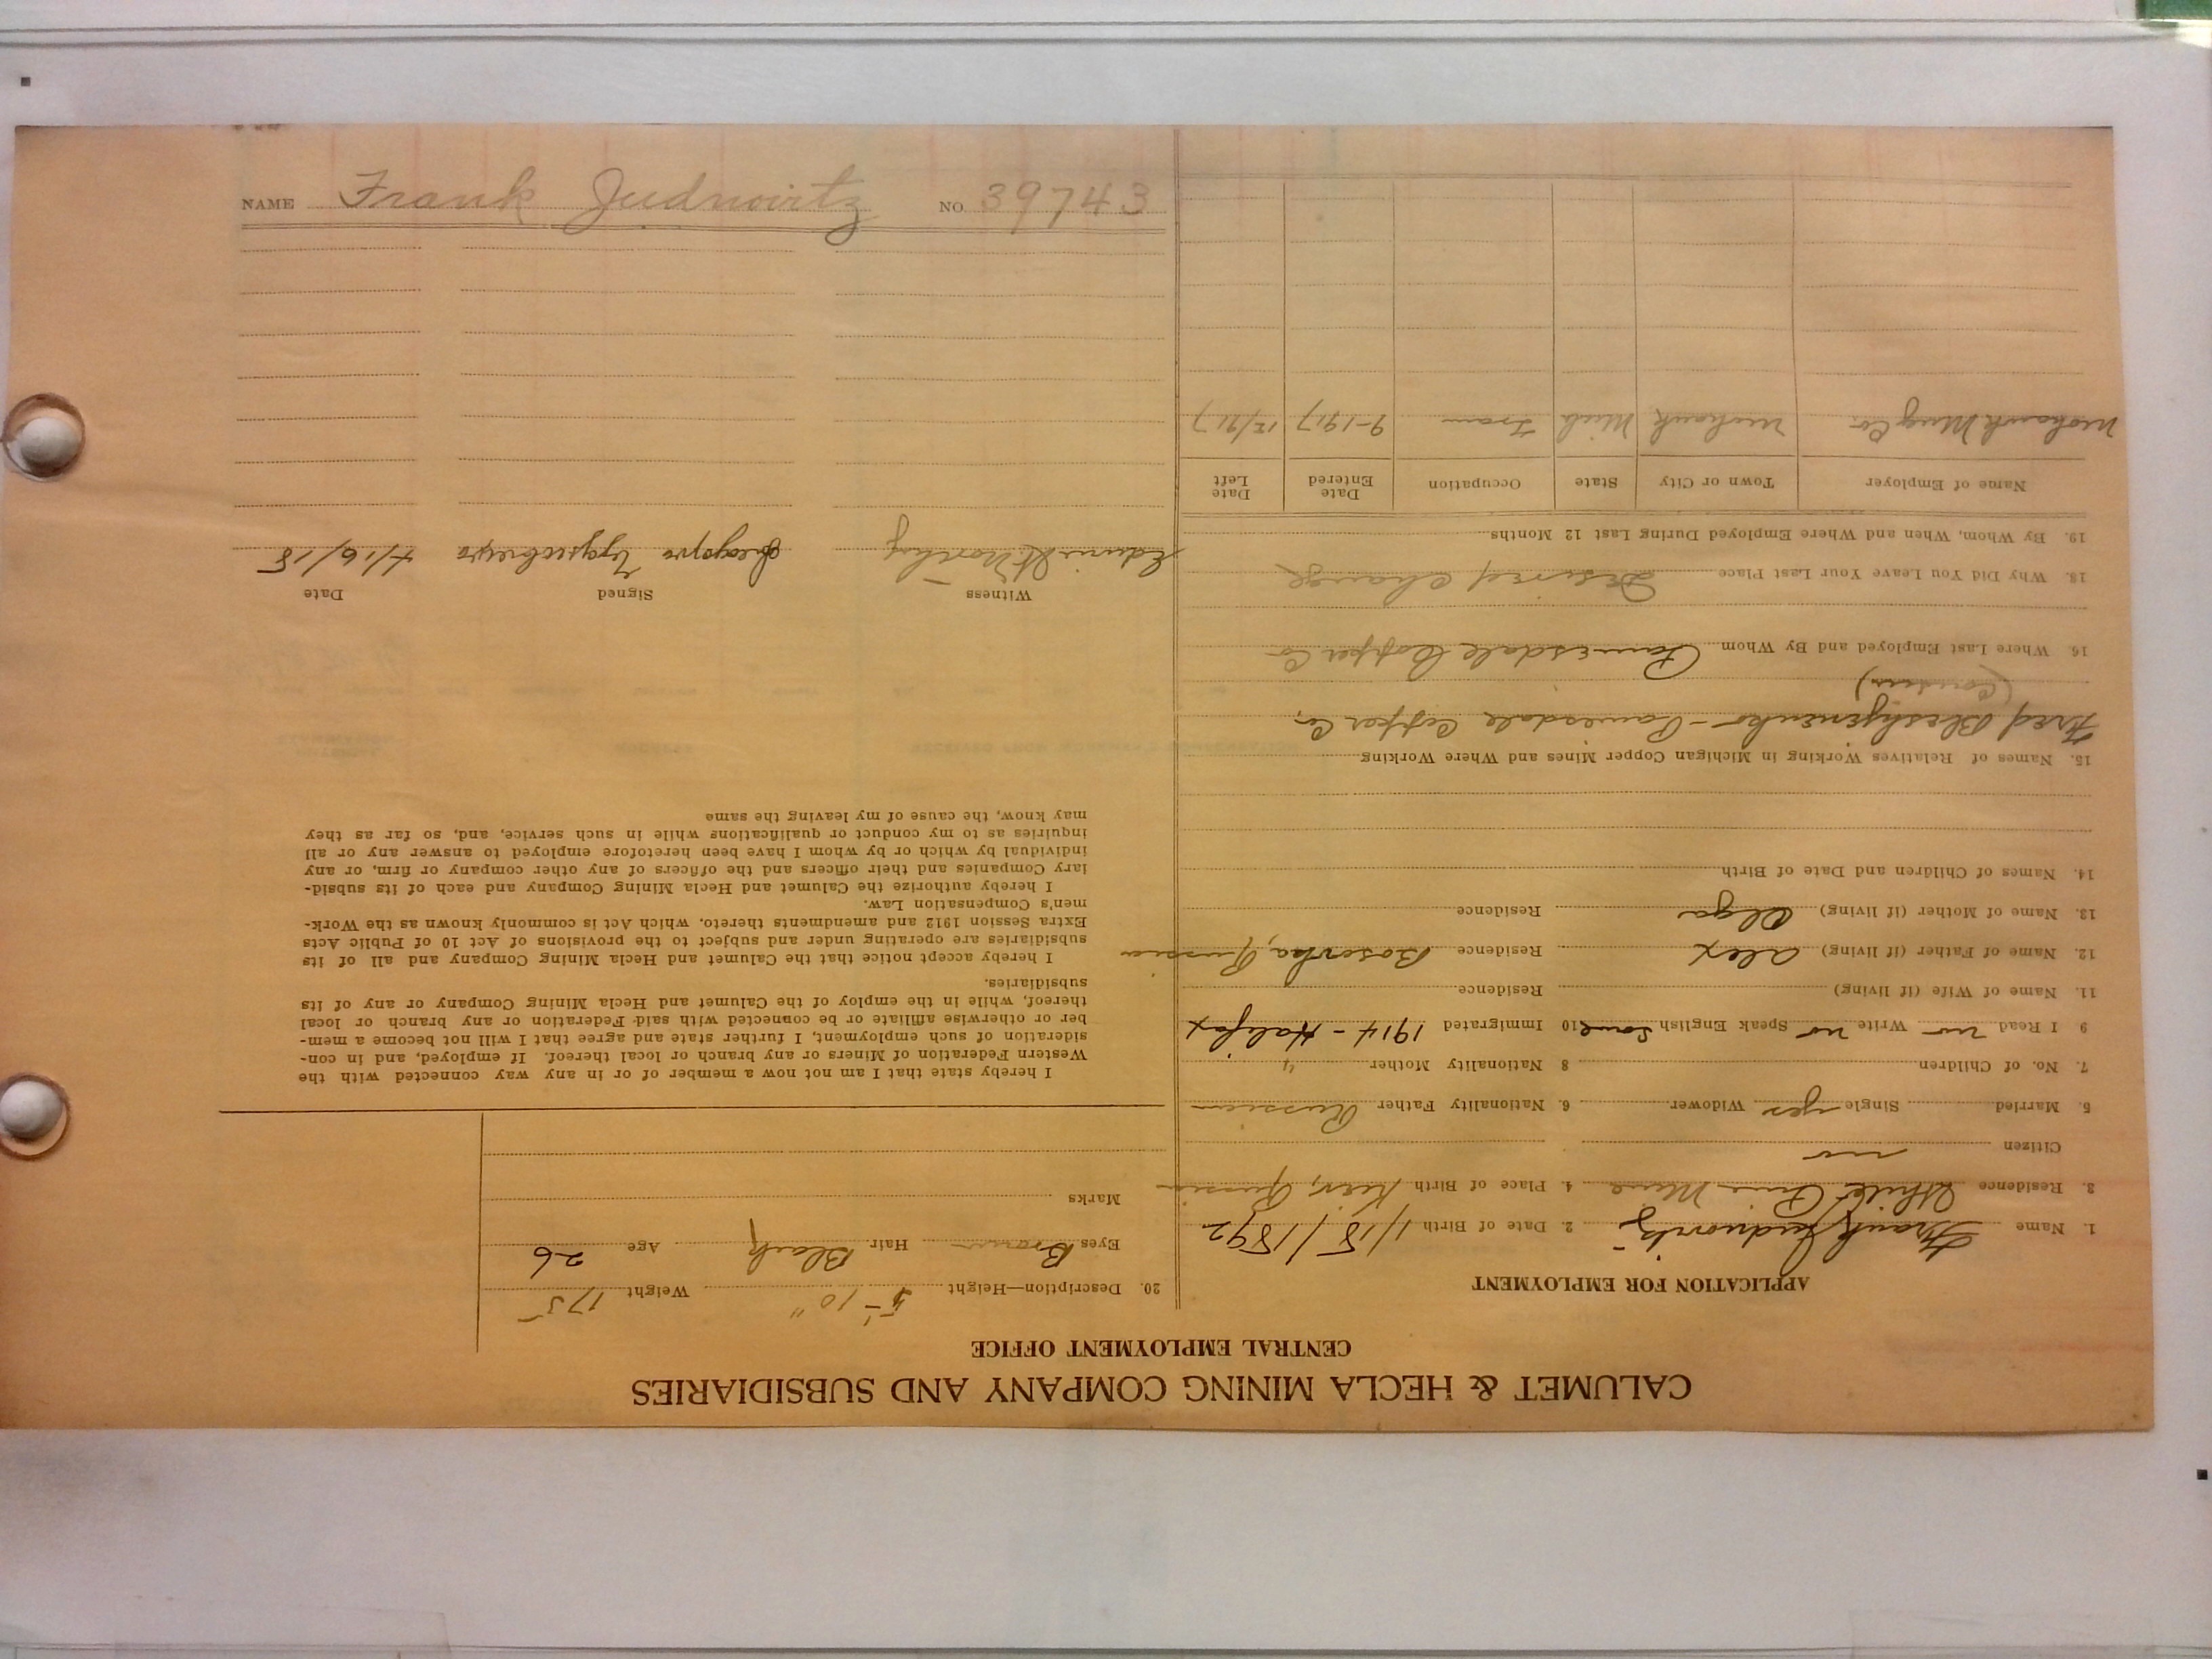 CALUMET & HECLA MINING COMPANY AND SUBSIDIARIES
CENTRAL EMPLOYMENT OFFICE
APPLICATION FOR EMPLOYMENT
1. Name Frank Judnovitz 2. Date of Birth 1/18/1892
3. Residence Pine 4. Place of Birth Kiev, Russia
Citizen no
5. Married Single yes Widower 6. Nationality Father Russian
7. No. of Children 8 Nationality Mother "
9 I Read no Write no Speak English Some 10 Immigrated 1914 - Halifax
11. Name of Wife (if living) Residence
12. Name of Father (if living) Alex Residence Russia
13. Name of Mother (if living) Olga Residence
14. Names of Children and Date of Birth
15. Names of Relatives Working in Michigan Copper Mines and Where Working
Fred - Painesdale Copper Co.
(Cousin)
16. Where Last Employed and By Whom Painesdale Copper Co
18. Why Did You Leave Your Last Place Desired Change
19. By Whom, When and Where Employed During Last 12 Months
Name of Employer Town or City State Occupation Date Entered Date Left
Mohawk Mng Co. Mohawk Mich Tram 9-1917 12/917
20. Description—Height 5'-10" Weight 175
Eyes Brown Hair Black Age 26
Marks
I hereby state that I am not now a member of or in any way connected with the
Western Federation of Miners or any branch or local thereof. If employed, and in con-
sideration of such employment, I further state and agree that I will not become a mem-
ber or otherwise affiliate or be connected with said Federation or any branch or local
thereof, while in the employ of the Calumet and Hecla Mining Company or any of its
subsidiaries.
I hereby accept notice that the Calumet and Hecla Mining Company and all of its
subsidiaries are operating under and subject to the provisions of Act 10 of Public Acts
Extra Session 1912 and amendments thereto, which Act is commonly known as the Work-
men's Compensation Law.
I hereby authorize the Calumet and Hecla Mining Company and each of its subsid-
iary Companies and their officers and the officers of any other company or firm, or any
individual by which or by whom I have been heretofore employed to answer any or all
inquiries as to my conduct or qualifications while in such service, and, so far as they
may know, the cause of my leaving the same
Witness Signed Date
4/16/18
NAME Frank Judnovitz NO. 39743